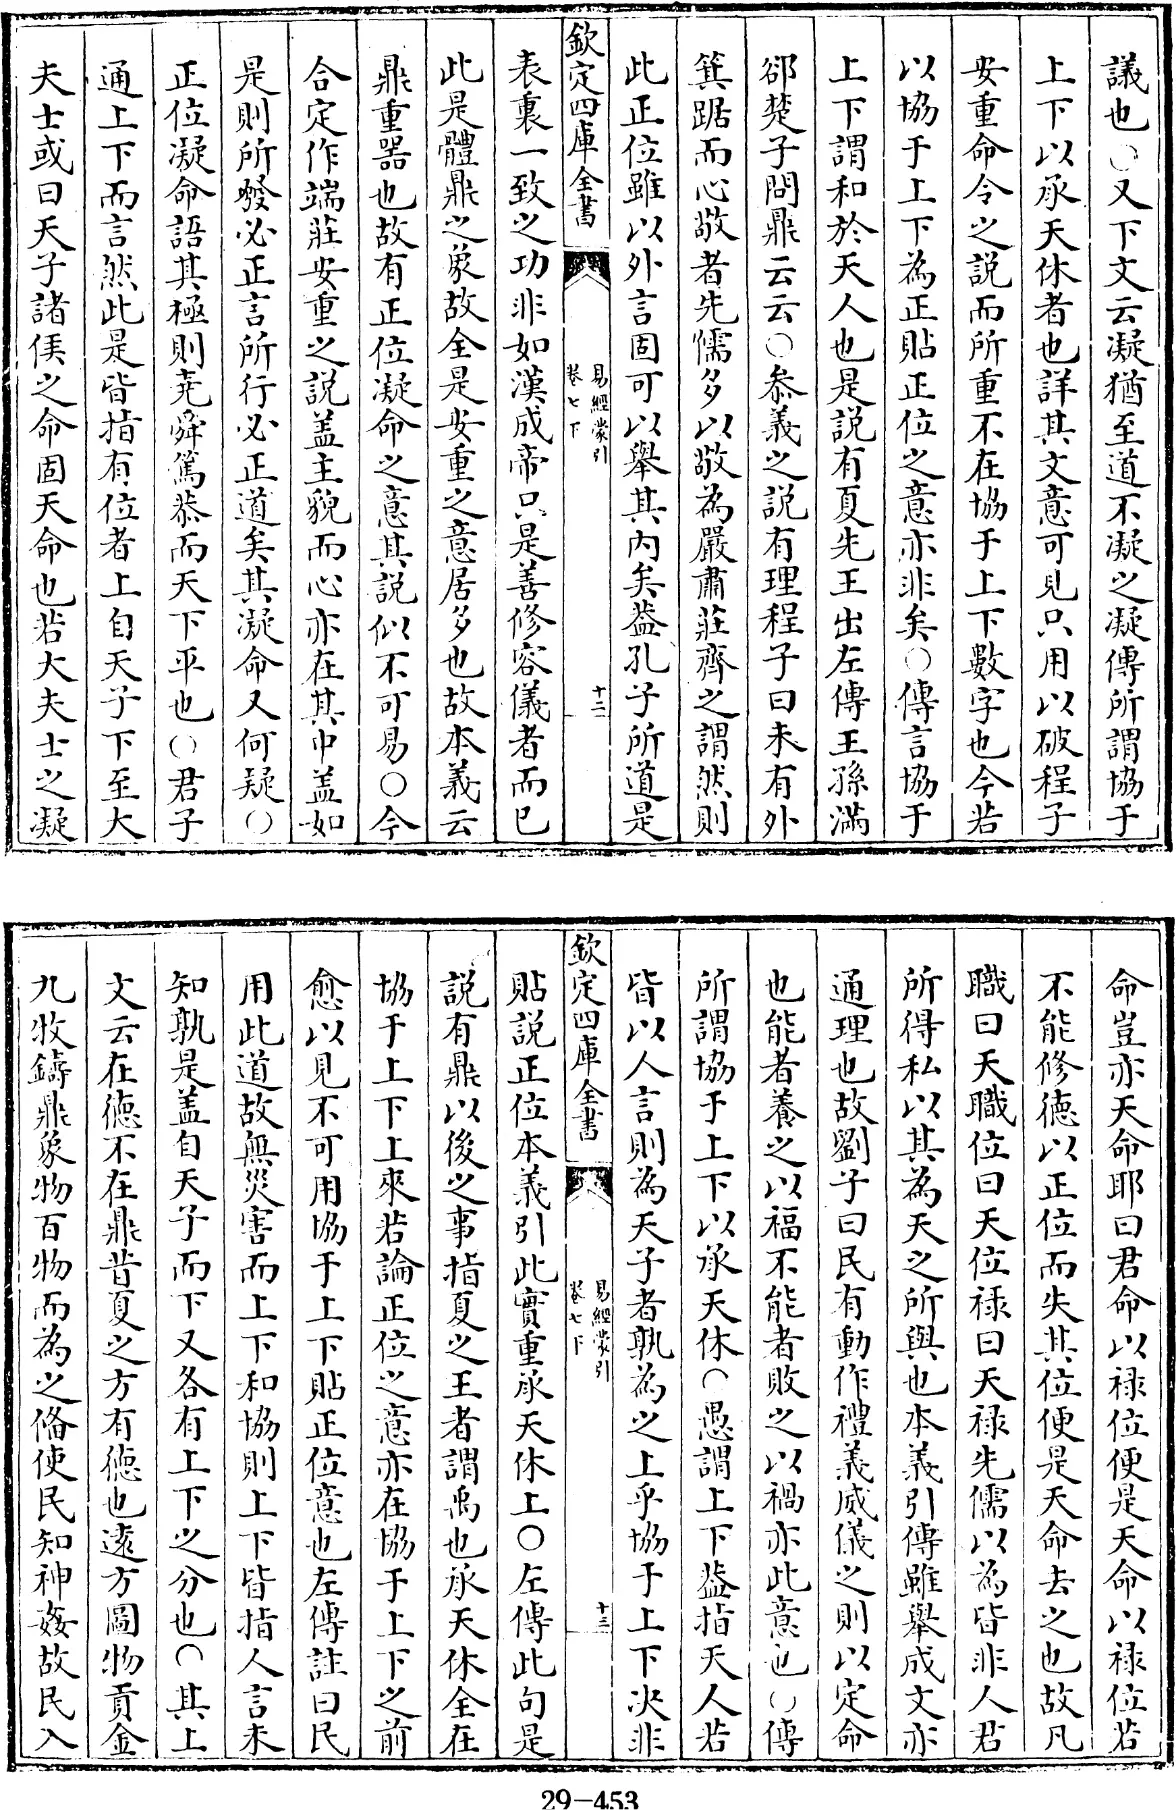 議也○又下文云凝猶至道不凝之凝傳所謂協于
上下以承天休者也詳其文意可見只用以破程子
安重命令之說而所重不在協于上下數字也今若
以協于上下為正貼正位之意亦非矣○傳言協于
上下謂和於天人也是說有夏先王出左傳王孫滿
郤楚子問鼎云云○叅義之說有理程子曰未有外
箕踞而心敬者先儒多以敬為嚴肅莊齊之謂然則
此正位雖以外言固可以舉其內矣蓋孔子所道是
欽定四庫全書
易經蒙引
卷七下
十二
表裏一致之功非如漢成帝只是善修容儀者而已
此是體鼎之象故全是安重之意居多也故本義云
鼎重器也故有正位凝命之意其說似不可易○今
合定作端莊安重之說盖主貌而心亦在其中盖如
是則所發必正言所行必正道矣其凝命又何疑○
正位凝命語其極則堯舜篤恭而天下平也○君子
通上下而言然此是皆指有位者上自天子下至大
夫士或曰天子諸侯之命固天命也若大夫士之凝
命豈亦天命耶曰君命以祿位便是天命以祿位若
不能修德以正位而失其位便是天命去之也故凡
職曰天職位曰天位祿曰天祿先儒以為皆非人君
所得私以其為天之所與也本義引傳雖舉成文亦
通理也故劉子曰民有動作禮義威儀之則以定命
也能者養之以福不能者敗之以禍亦此意也○傳
所謂協于上下以承天休○愚謂上下蓋指天人若
皆以人言則為天子者孰為之上乎協于上下决非
欽定四庫全書
易經蒙引
卷七下
十三
貼說正位本義引此實重承天休上○左傳此句是
說有鼎以後之事指夏之王者謂禹也承天休全在
協于上下上來若論正位之意亦在協于上下之前
愈以見不可用協于上下貼正位意也左傳註曰民
用此道故無災害而上下和協則上下皆指人言未
知孰是盖自天子而下又各有上下之分也○其上
文云在德不在鼎昔夏之方有德也遠方圖物貢金
九牧鑄鼎象物百物而為之俻使民知神姦故民入
29-453